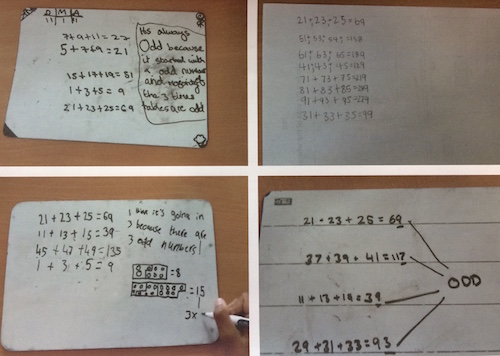 D M A
11 1 31
7+9+11=27
5+7+9=21
15+17+19=51
1+3+5=9
21+23+25=69
its always
Odd because
it started with
a odd number
and
the 3 times
tables are odd
21+23+25=69
61+63+65=189
71+73+75=219
31+33+35=99
21+23+25=69
11+13+15=39
45+47+49=135
1+3+5=9
it's going in
3 because there are
3 odd numbers
8 =8
=15
3x
21+23+25=69
37+39+41=117
11+13+15=39
29+31+33=93
ODD